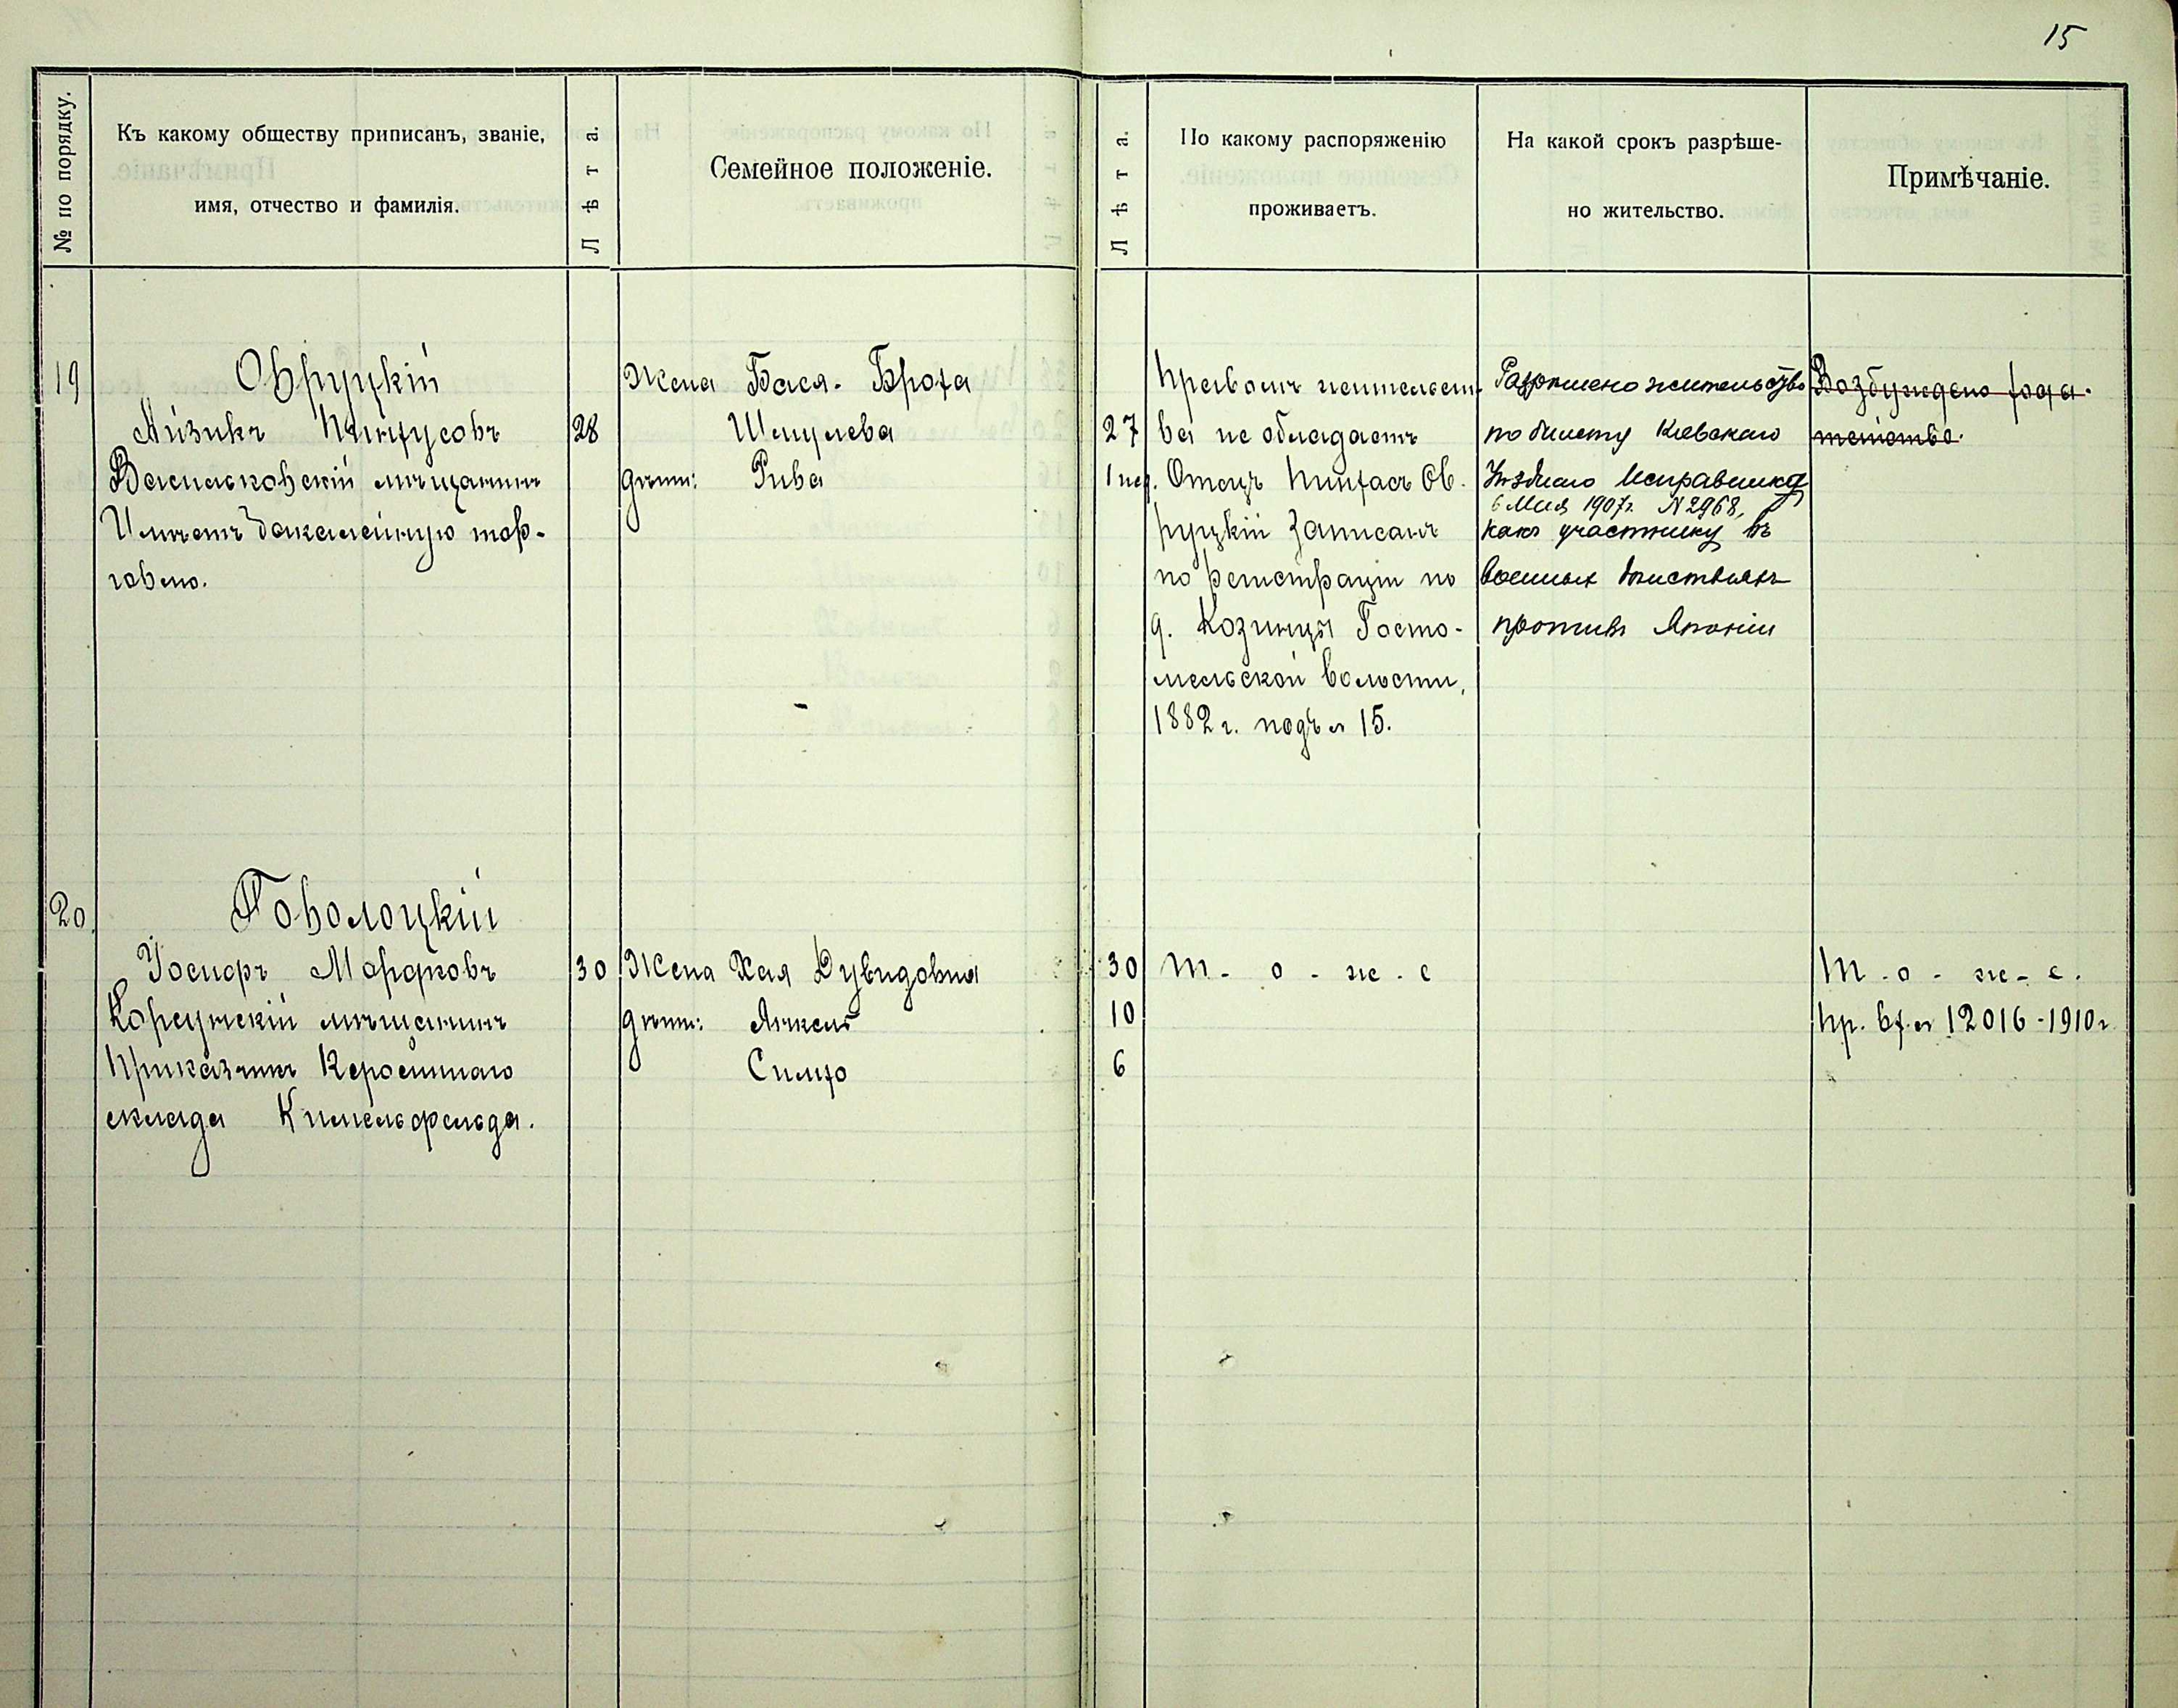 15
№ по порядку.
Къ какому обществу приписанъ, званіе,
имя, отчество и фамилія.
Лѣта.
Семейное положеніе.
Лѣта.
По какому распоряженію
проживаетъ.
На какой срокъ разрѣше-
но жительство.
Примѣчаніе.
19
Овруцкій
Айзикъ Пинхусовъ
Васильковскій мѣщанинъ
Имѣетъ бакалейную тор-
говлю.
28
Жена Бася-Броха
Шмулева
дѣти: Рива
27
1 нед.
Правомъ жительст-
ва не обладаетъ
Отецъ Пинхасъ Ов-
руцкій записанъ
по регистраціи по
д. Козинцы Госто-
мельской волости,
1882 г. подъ № 15.
Разрѣшено жительство
по билету Кіевскаго
Уѣзднаго Исправника
6 Мая 1907г. N 2968,
какъ участнику въ
военныхъ дѣйствіяхъ
противъ Японіи
Возбуждено хода-
тайство.
20.
Поволоцкій
Іосифъ Мордковъ
Корсунскій мѣщанинъ
Приказчикъ Керосиннаго
склада Кимельфельда.
30
Жена Хая Дувидовна
дѣти: Янкель
Симхо
30
10
6
Т - о - ж - е
Т - о - ж - е.
Пр. вх. № 12016 - 1910 г